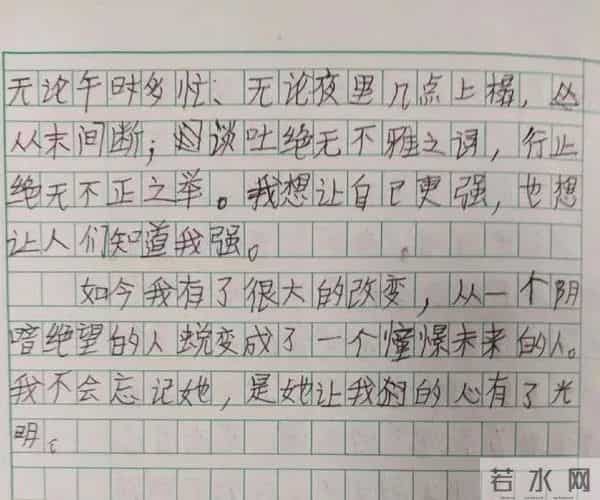 无论午时多忙、无论夜里几点上榻，
从未间断；谈吐绝无不雅之词，行止
绝无不正之举。我想让自己更强，也想
让人们知道我强。
如今我有了很大的改变，从一个阴
暗绝望的人蜕变成了一个憧憬未来的人。
我不会忘记她，是她让我的心有了光
明。
若水网